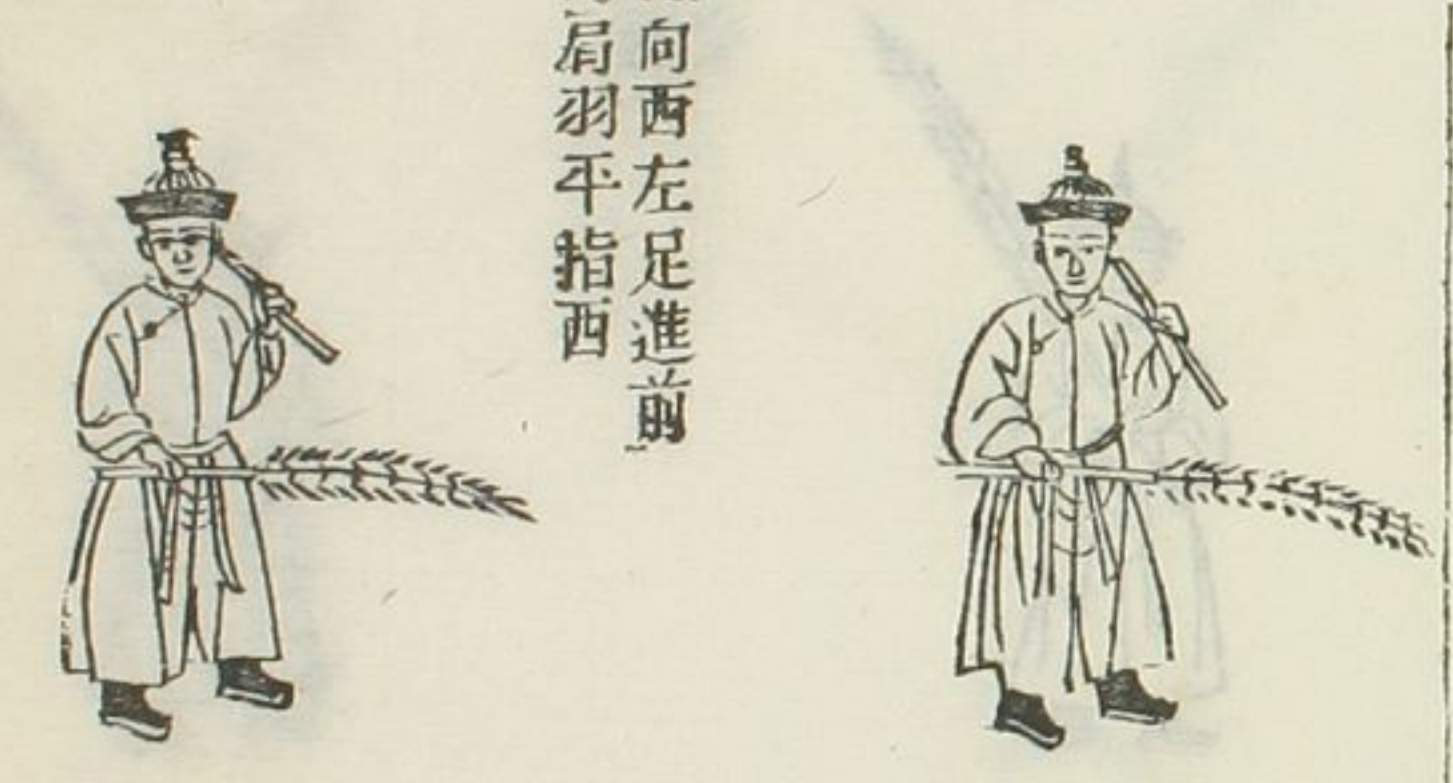 向西左足進前
肩羽平指西